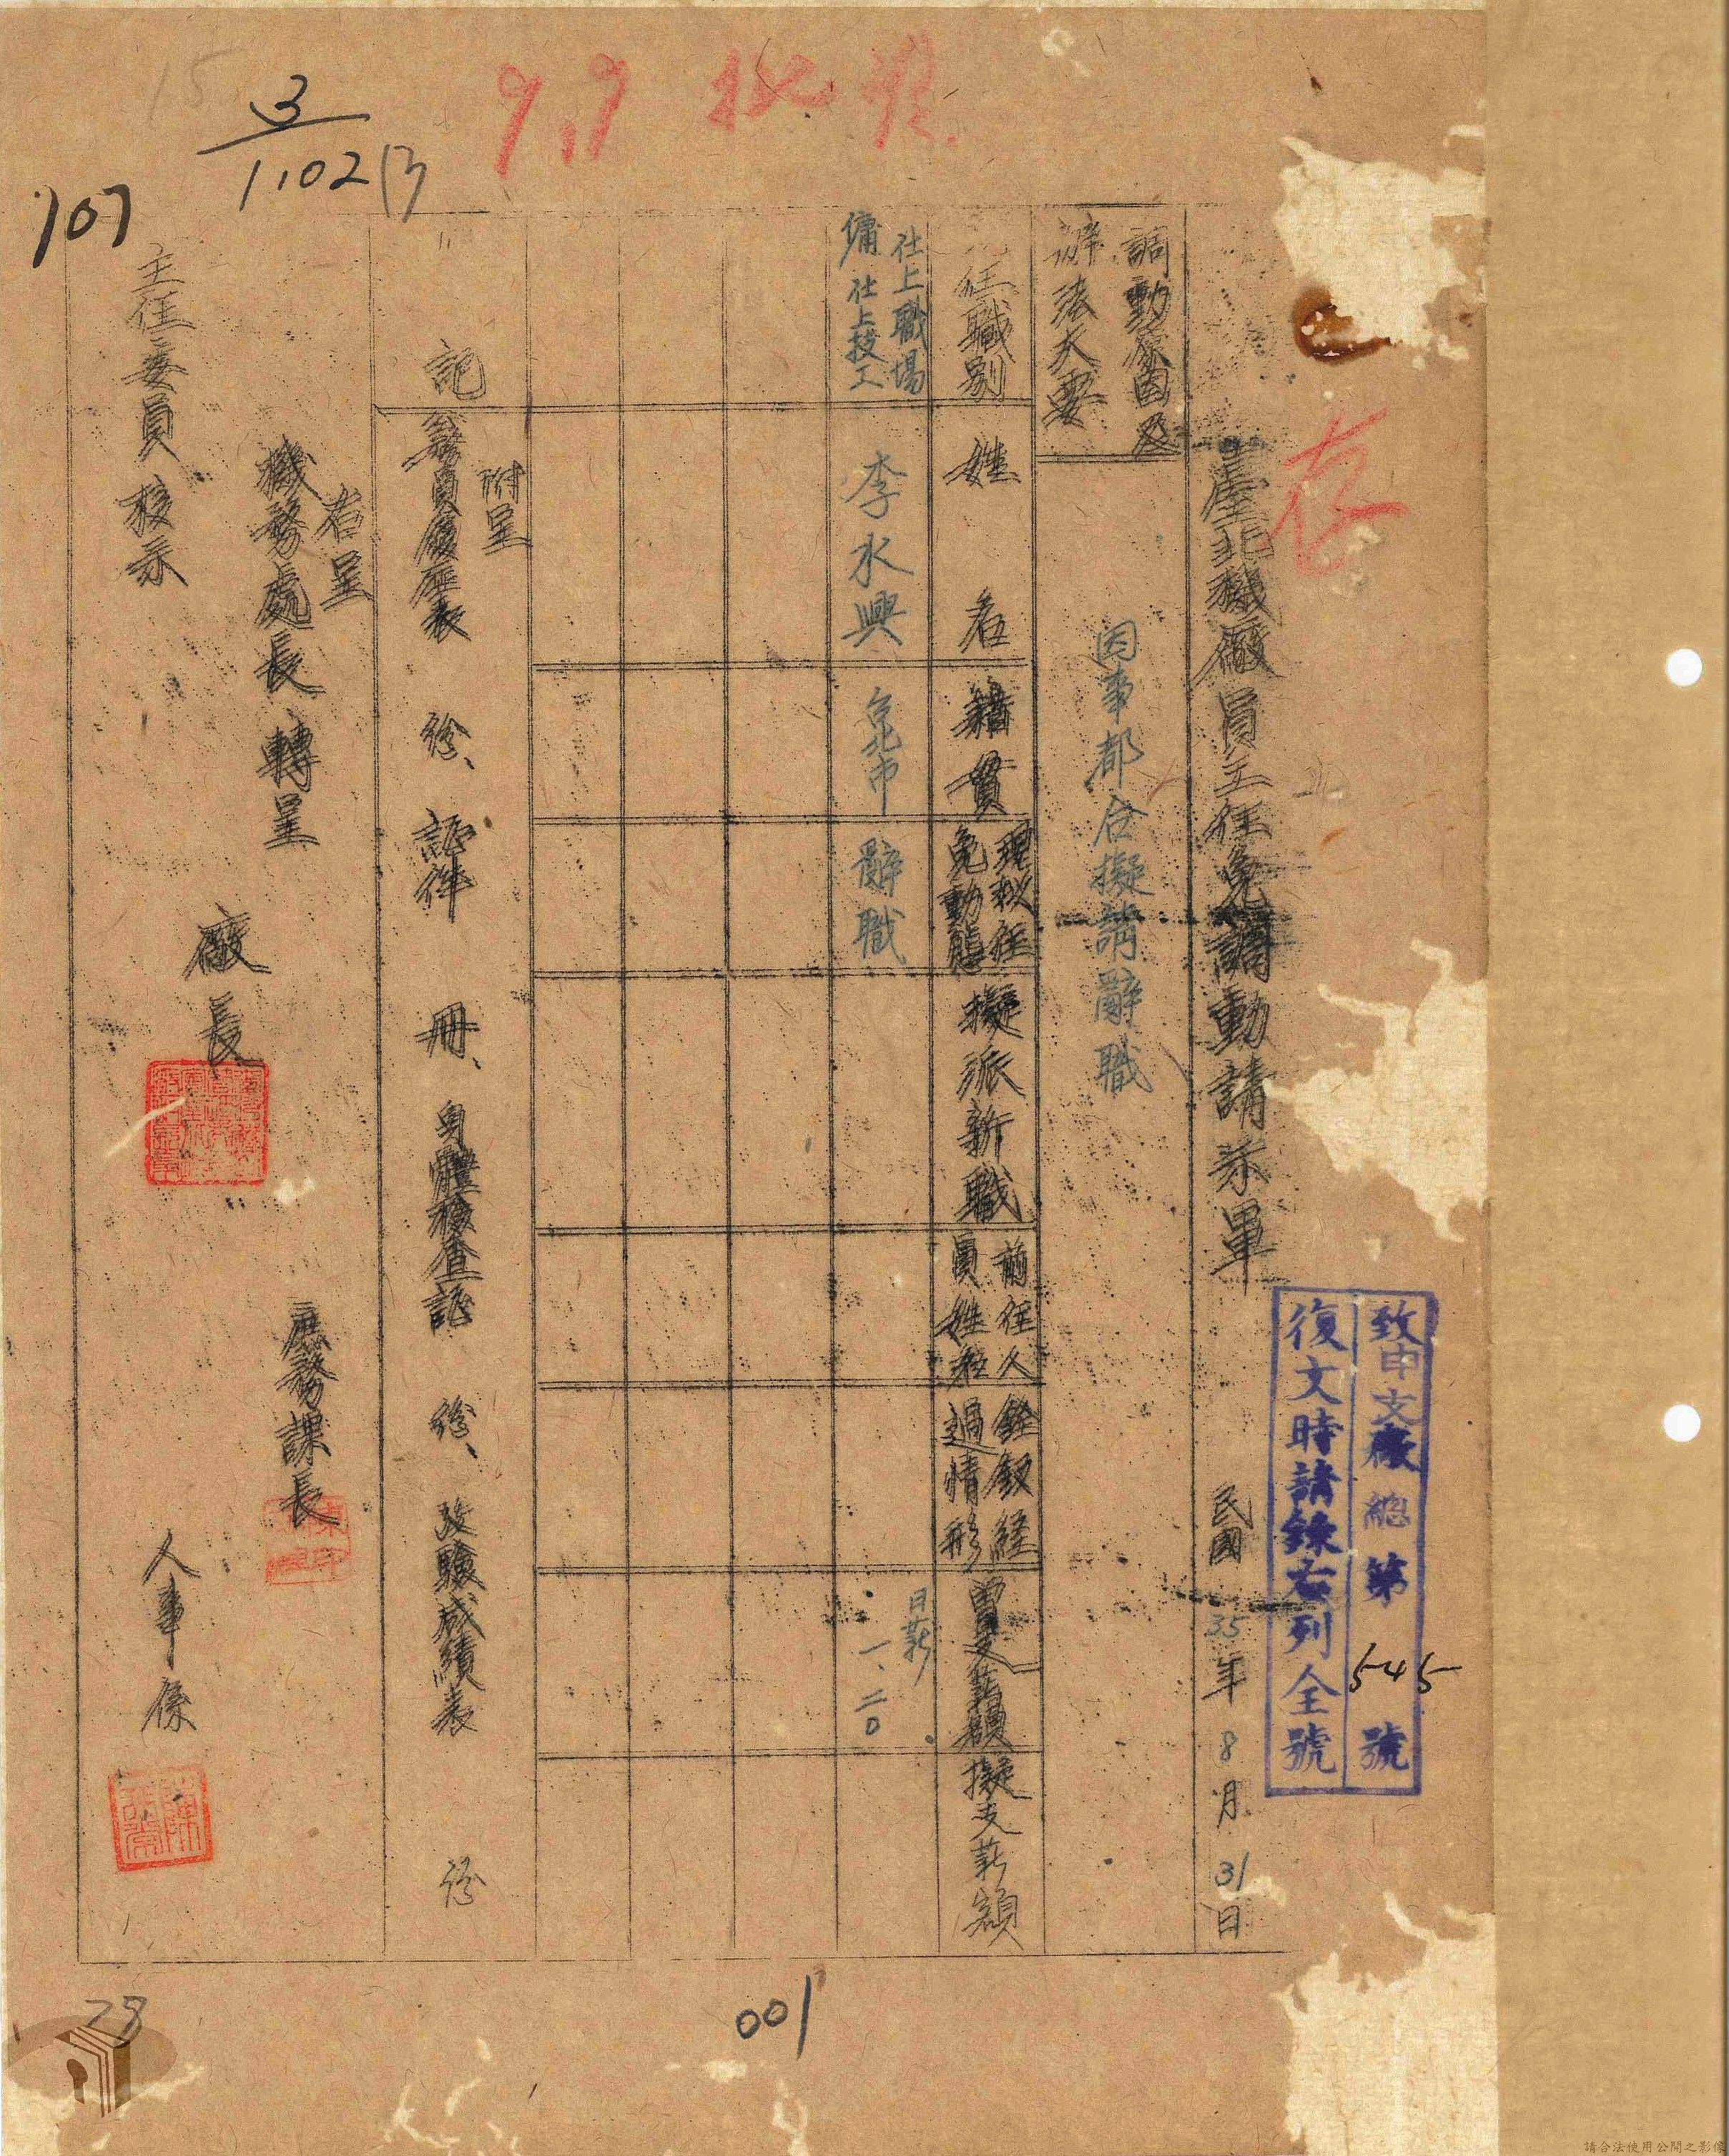 9,9 批准
15
3
1102(3)
107
存
致申文廠總第545號
復文時請錄右列全號
臺北機廠員工任免調動請示單 民國35年8月31日
調動原因及
辦法大要
因事都合擬請辭職
任職別 姓名 籍貫 現擬任免動態 擬派新職 前任人員姓名 銓敘経過情形 曾支薪額 擬支薪額
仕上職場
傭仕上技工
李水興 台北市 辭職
日薪
一、二〇
附呈
記 員履歷表 份、證件 冊、身體檢查證 份、攷驗成績表 份
右呈
機務處長 轉呈
主任委員 核示
廠長
庶務課長
人事係
28
001
請合法使用公開之影像